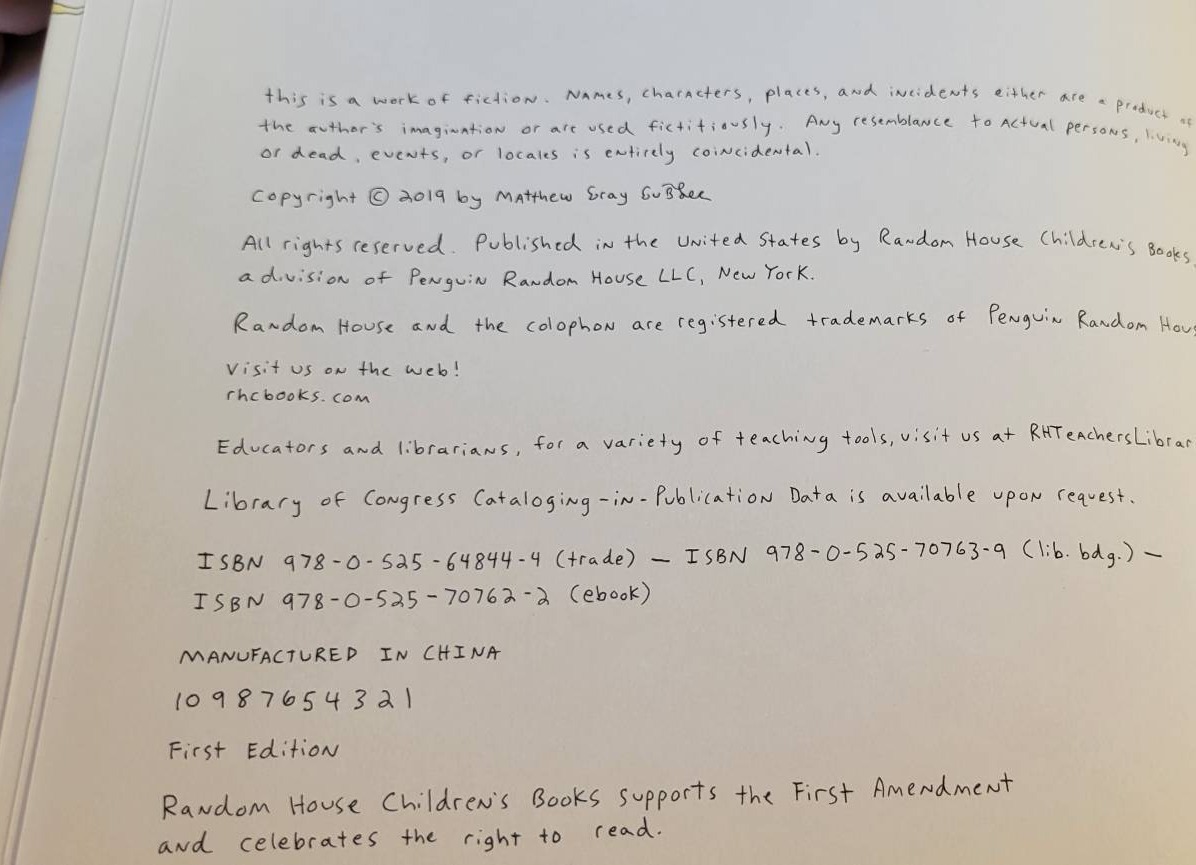 this is a work of fiction. Names, characters, places, and incidents either are a product of
the author's imagination or are used fictitiously. Any resemblance to actual persons, living
or dead, events, or locales is entirely coincidental.
Copyright © 2019 by Matthew Gray Gubler
All rights reserved. Published in the United States by Random House Children's Books,
a division of Penguin Random House LLC, New York.
Random House and the colophon are registered trademarks of Penguin Random Hous
Visit us on the web!
rhcbooks.com
Educators and librarians, for a variety of teaching tools, visit us at RHTeachersLibrar
Library of Congress Cataloging-in-Publication Data is available upon request.
ISBN 978-0-525-64844-4 (trade) — ISBN 978-0-525-70763-9 (lib. bdg.) —
ISBN 978-0-525-70762-2 (ebook)
MANUFACTURED IN CHINA
10 9 8 7 6 5 4 3 2 1
First Edition
Random House Children's Books supports the First Amendment
and celebrates the right to read.